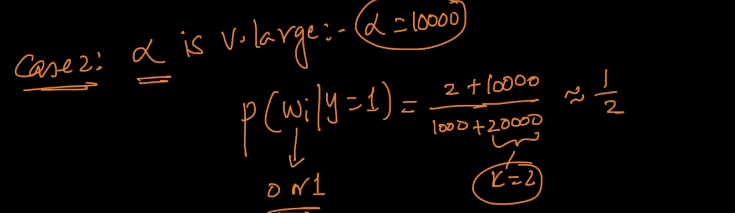 Case2: α is v. large:- α=10000
P(wi|y=1) = 2+10000 / 1000+20000 ≈ 1/2
0 or 1 K=2